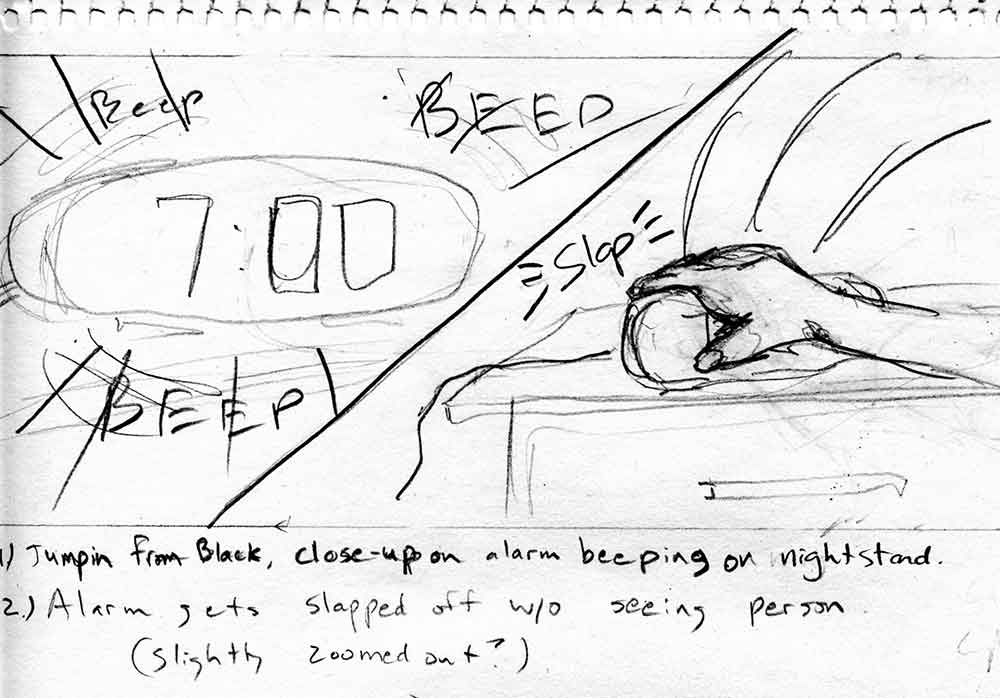 Beep
BEEP
7:00
BEEP
Slap
1) Jump in from Black, close-up on alarm beeping on nightstand.
2.) Alarm gets slapped off w/o seeing person.
(slightly zoomed out?)